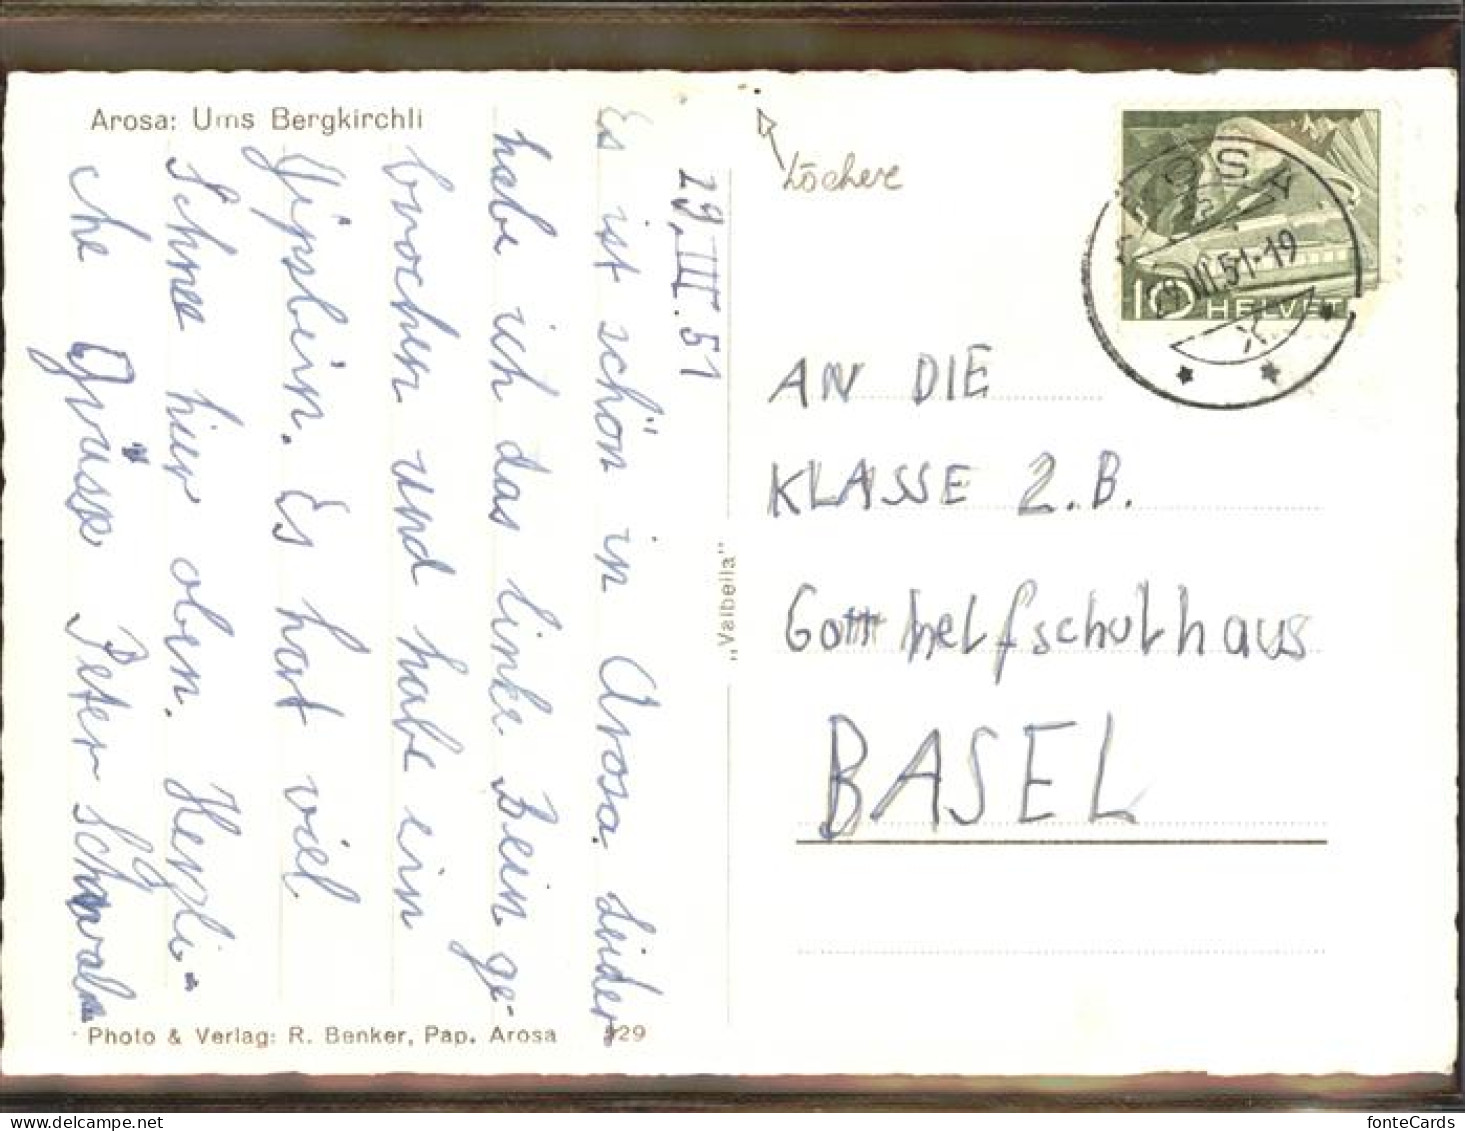 Arosa: Ums Bergkirchli
29. III. 51
Es ist schön in Arosa. Leider
habe ich das linke Bein ge-
brochen und habe ein
Gipsbein. Es hat viel
Schnee hier oben. Herzli-
che Grüsse Peter
Löchere
AROSA
29.III.51-19
X
10 HELVET
AN DIE
KLASSE 2.B.
Gotthelfschulhaus
BASEL
„Valbella"
Photo & Verlag: R. Benker, Pap. Arosa 529
fonteCards